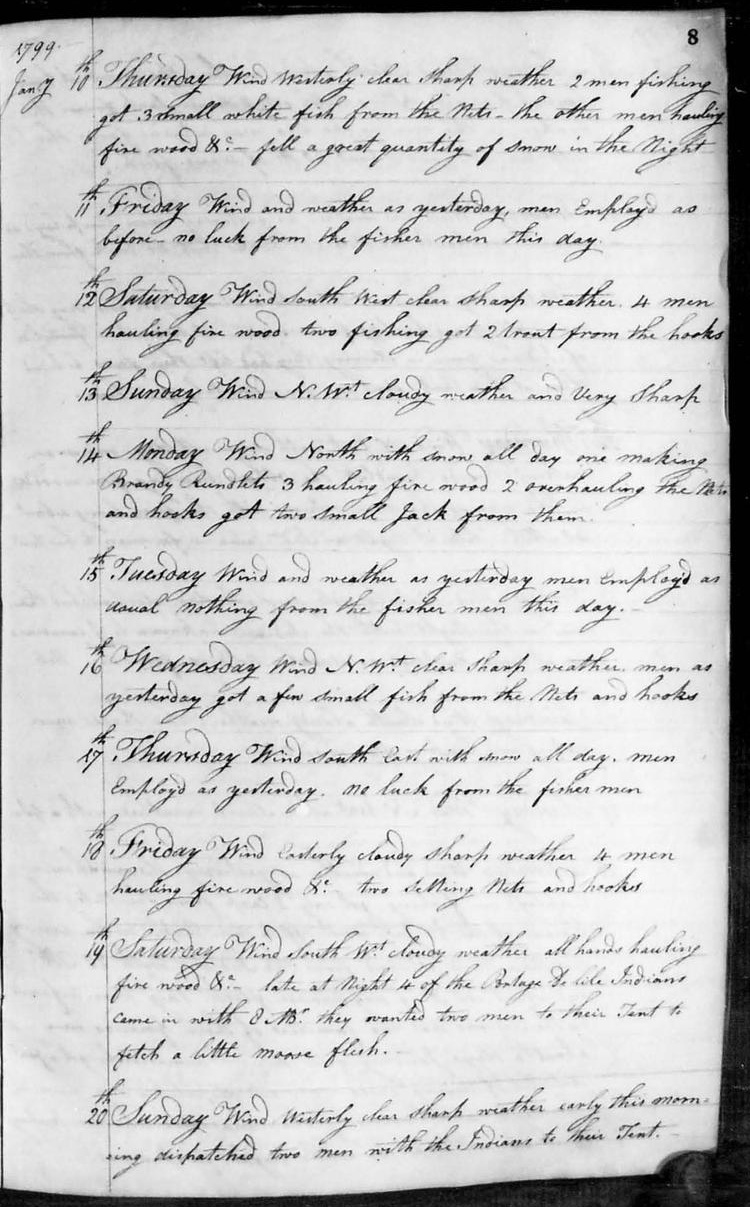 8
1799
Jany 10th Thursday Wind Westerly clear sharp weather 2 men fishing
got 3 small white fish from the Nets - the other men hauling
fire wood &c - fell a great quantity of snow in the Night
11th Friday Wind and weather as yesterday, men Employd as
before - no luck from the fisher men this day.
12th Saturday Wind South West clear sharp weather. 4 men
hauling fire wood. two fishing got 2 trout from the hooks
13th Sunday Wind N. Wt cloudy weather and Very sharp
14th Monday Wind North with snow all day one making
Brandy Rundlets 3 hauling fire wood 2 overhauling the Nets
and hooks got two small Jack from them.
15th Tuesday Wind and weather as yesterday men Employd as
usual nothing from the fisher men this day. -
16th Wednesday Wind N. Wt clear sharp weather. men as
yesterday got a few small fish from the Nets and hooks
17th Thursday Wind South East with snow all day. men
Employd as yesterday. no luck from the fisher men
18th Friday Wind Easterly cloudy sharp weather 4 men
hauling fire wood &c - two setting Nets and hooks
19th Saturday Wind South Wt cloudy weather all hands hauling
fire wood &c - late at Night 4 of the Portage De Lile Indians
came in with 8 MBr they wanted two men to their Tent to
fetch a little moose flesh. -
20th Sunday Wind Westerly clear sharp weather early this morn=
=ing dispatched two men with the Indians to their Tent. -